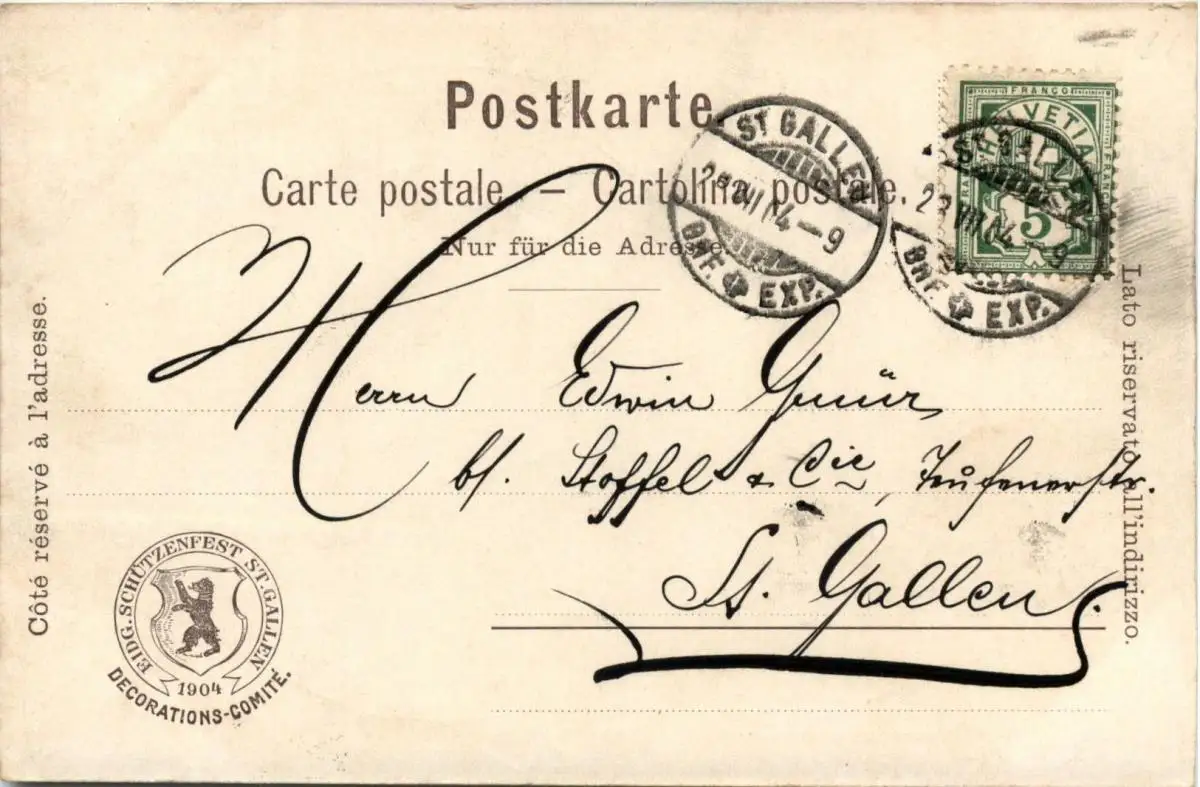 Postkarte
Carte postale. – Cartolina postale.
Nur für die Adresse
ST GALLEN
VII 04 – 9
BHF. EXP.
FRANCO
HELVETIA
FRANCO
5
ST GALLEN
VIII 04 9
BHF. EXP.
Côté réservé à l'adresse.
Lato riservato all'indirizzo.
Herrn Edwin Gmür
bf. Stoffel & Cie, Teufenerstr.
St. Gallen.
EIDG. SCHÜTZENFEST ST. GALLEN
1904
DECORATIONS-COMITÉ.